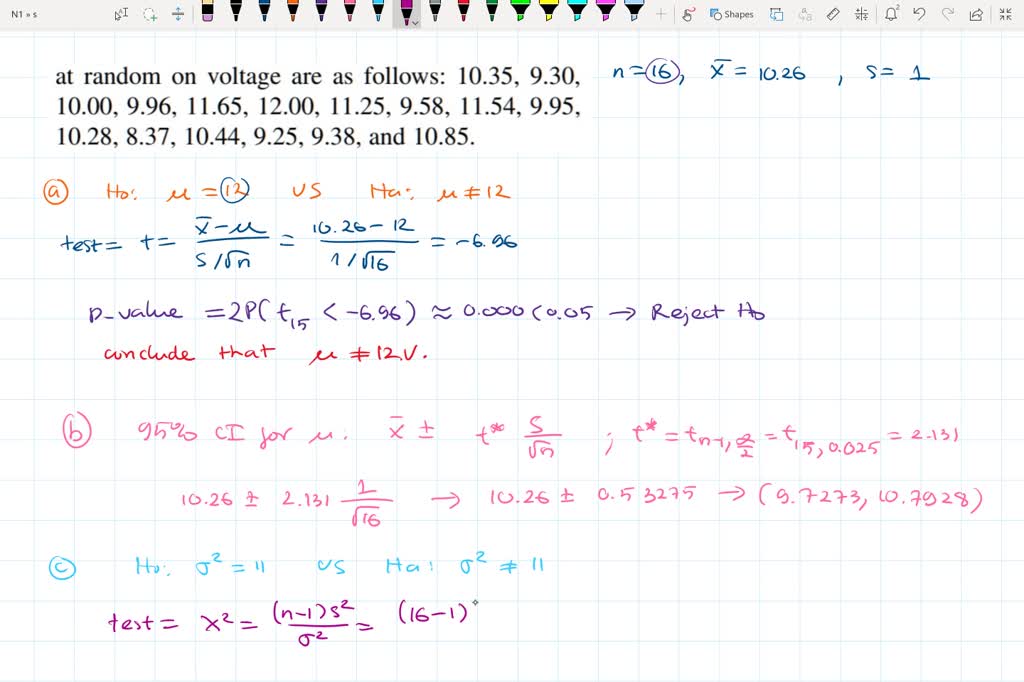 N1 » s
Shapes
at random on voltage are as follows: 10.35, 9.30,
10.00, 9.96, 11.65, 12.00, 11.25, 9.58, 11.54, 9.95,
10.28, 8.37, 10.44, 9.25, 9.38, and 10.85.
n=16, x̄ = 10.26 , s= 1
(a) Ho: μ = 12 vs Ha: μ ≠ 12
test= t= (x̄-μ)/(s/√n) = (10.26-12)/(1/√16) = -6.96
p-value = 2P(t₁₅ < -6.96) ≈ 0.000 < 0.05 → Reject Ho
conclude that μ ≠ 12V.
(b) 95% CI for μ: x̄ ± t* s/√n ; t* = t n-1, α/2 = t 15, 0.025 = 2.131
10.26 ± 2.131 1/√16 → 10.26 ± 0.53275 → (9.7273, 10.7928)
(c) Ho: σ² = 11 vs Ha: σ² ≠ 11
test = x² = (n-1)s²/σ² = (16-1)